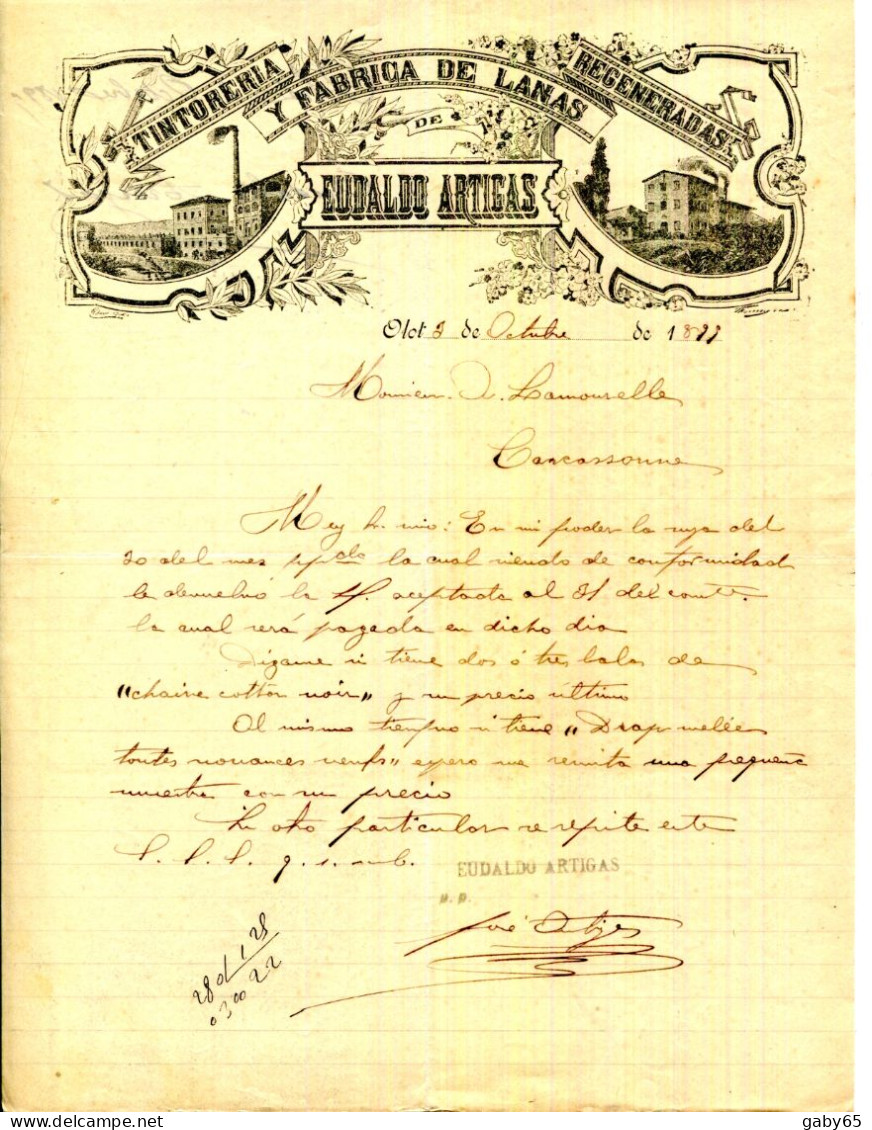 TINTORERIA
Y FABRICA DE LANAS
REGENERADAS
DE
EUDALDO ARTIGAS
Olot 3 de Octubre de 1899
Monsieur A. Lamourelle
Carcassonne
Muy Sr. mio: En mi poder la suya del
30 del mes ppdo la cual siendo de conformidad
le devuelvo la L/. aceptada al 31 del cortte.
la cual será pagada en dicho dia
Digame si tiene dos ó tres balas de
"chaine cotton noir" y su precio último
Al mismo tiempo si tiene "Drap melée
toutes nouances neufs" espero me remita una pequeña
muestra con su precio
Sin otro particular se repite este
S. S. S. q. s. m. b.
EUDALDO ARTIGAS
P. P.
José
28
22
gaby65